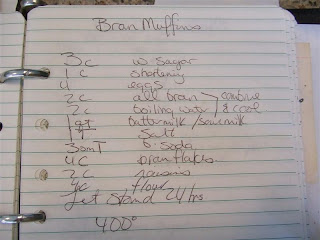 Bran Muffins
3c w. sugar
1c shortening
4 eggs
2c all bran > combine
2c boiling water & cool
1 qt buttermilk / sourmilk
1 T salt
3 smT b. soda
4c bran flakes
2c raisins
4c flour
Let stand 24 hrs
400°